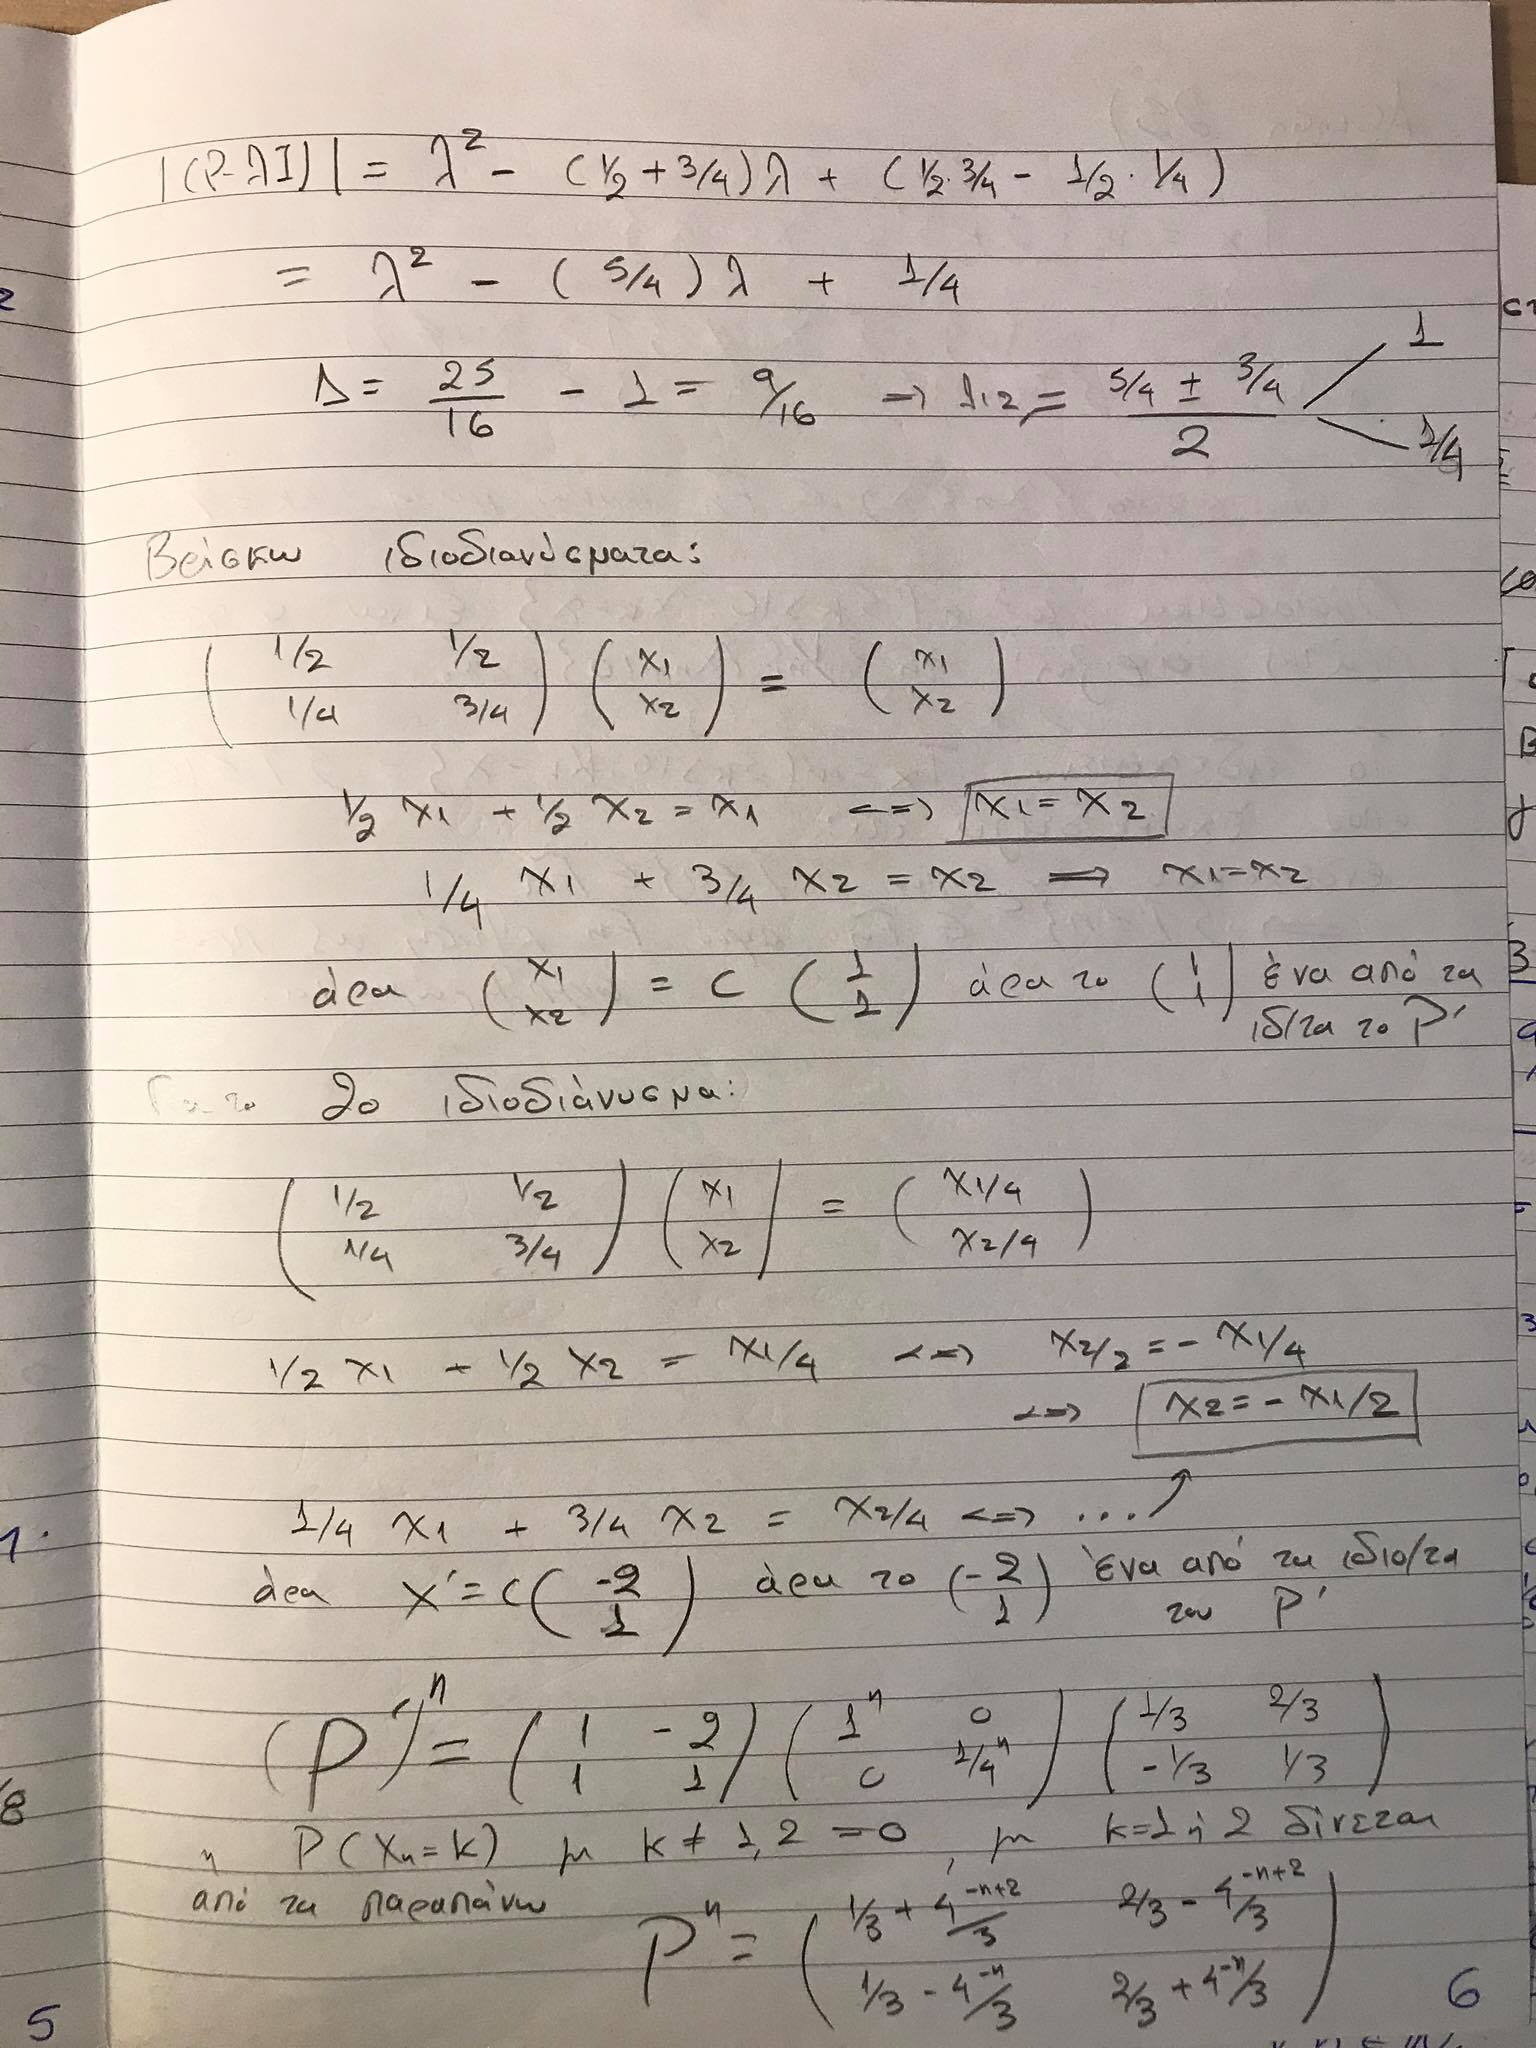 |(P-λI)| = λ² - (1/2 + 3/4)λ + (1/2·3/4 - 1/2·1/4)
= λ² - (5/4)λ + 1/4
Δ = 25/16 - 1 = 9/16 => 1,2 = (5/4 ± 3/4)/2 1
1/4
Βρίσκω ιδιοδιανύσματα:
(1/2 1/2) (x1) = (x1)
(1/4 3/4) (x2) (x2)
1/2 x1 + 1/2 x2 = x1 <=> x1 = x2
1/4 x1 + 3/4 x2 = x2 => x1=x2
άρα (x1 x2) = c (1 1) άρα το (1 1) ένα από τα
ιδ/τα το P'
Για το 2ο ιδιοδιάνυσμα:
(1/2 1/2) (x1) = (x1/4)
(1/4 3/4) (x2) (x2/4)
1/2 x1 + 1/2 x2 = x1/4 <=> x2/2 = - x1/4
<=> x2 = - x1/2
1/4 x1 + 3/4 x2 = x2/4 <=> ...
άρα x' = c(-2 1) άρα το (-2 1) ένα από τα ιδιο/τα
του P'
(P')ⁿ = (1 -2) (1ⁿ 0) (1/3 2/3)
(1 1) (0 1/4ⁿ) (-1/3 1/3)
η P(Xn=k) με k≠1,2 = 0, με k=1 ή 2 δίνεται
από τα παραπάνω
Pⁿ = (1/3 + 4^(-n+2)/3 2/3 - 4^(-n+2)/3)
(1/3 - 4^(-n)/3 2/3 + 4^(-n)/3)
5
6